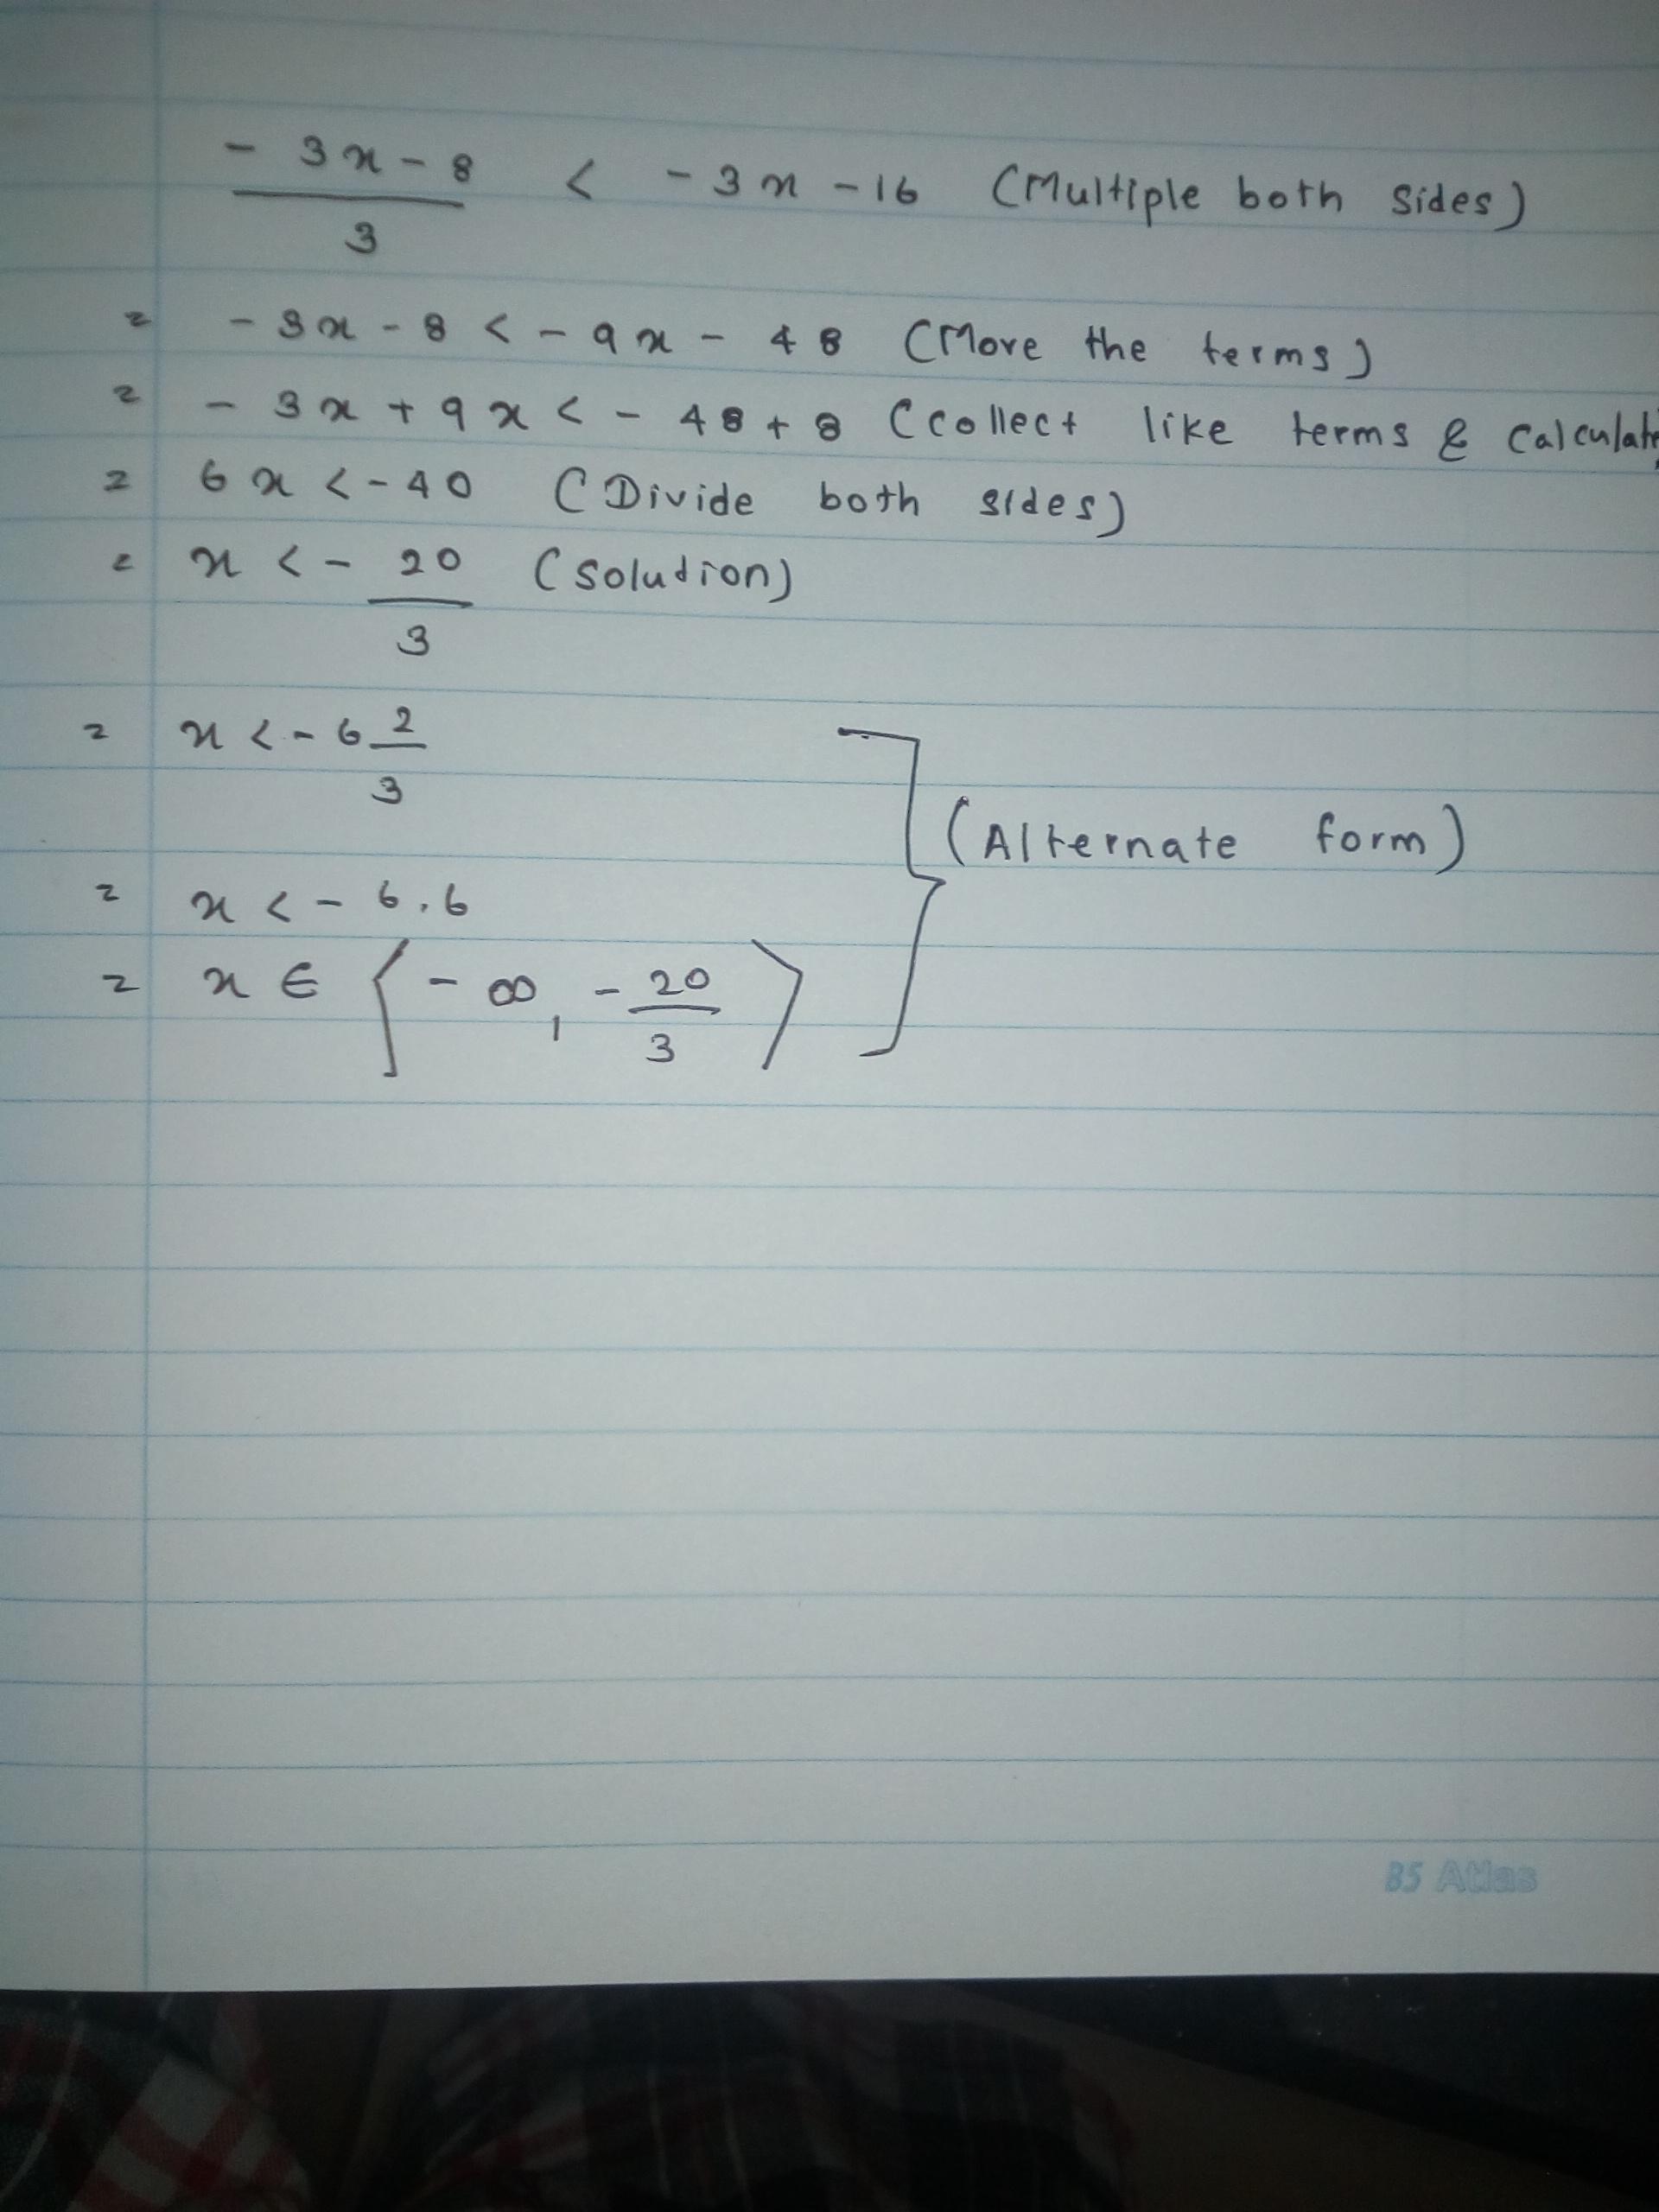 - 3x - 8 < - 3x - 16 (Multiple both sides)
3
= - 3x - 8 < - 9x - 48 (Move the terms)
= - 3x + 9x < - 48 + 8 (collect like terms & calculate
= 6x < - 40 (Divide both sides)
= x < - 20 (solution)
3
= x < - 6 2
3
(Alternate form)
= x < - 6.6
= x ∈ ⟨ - ∞, - 20 ⟩
3
B5 Atlas